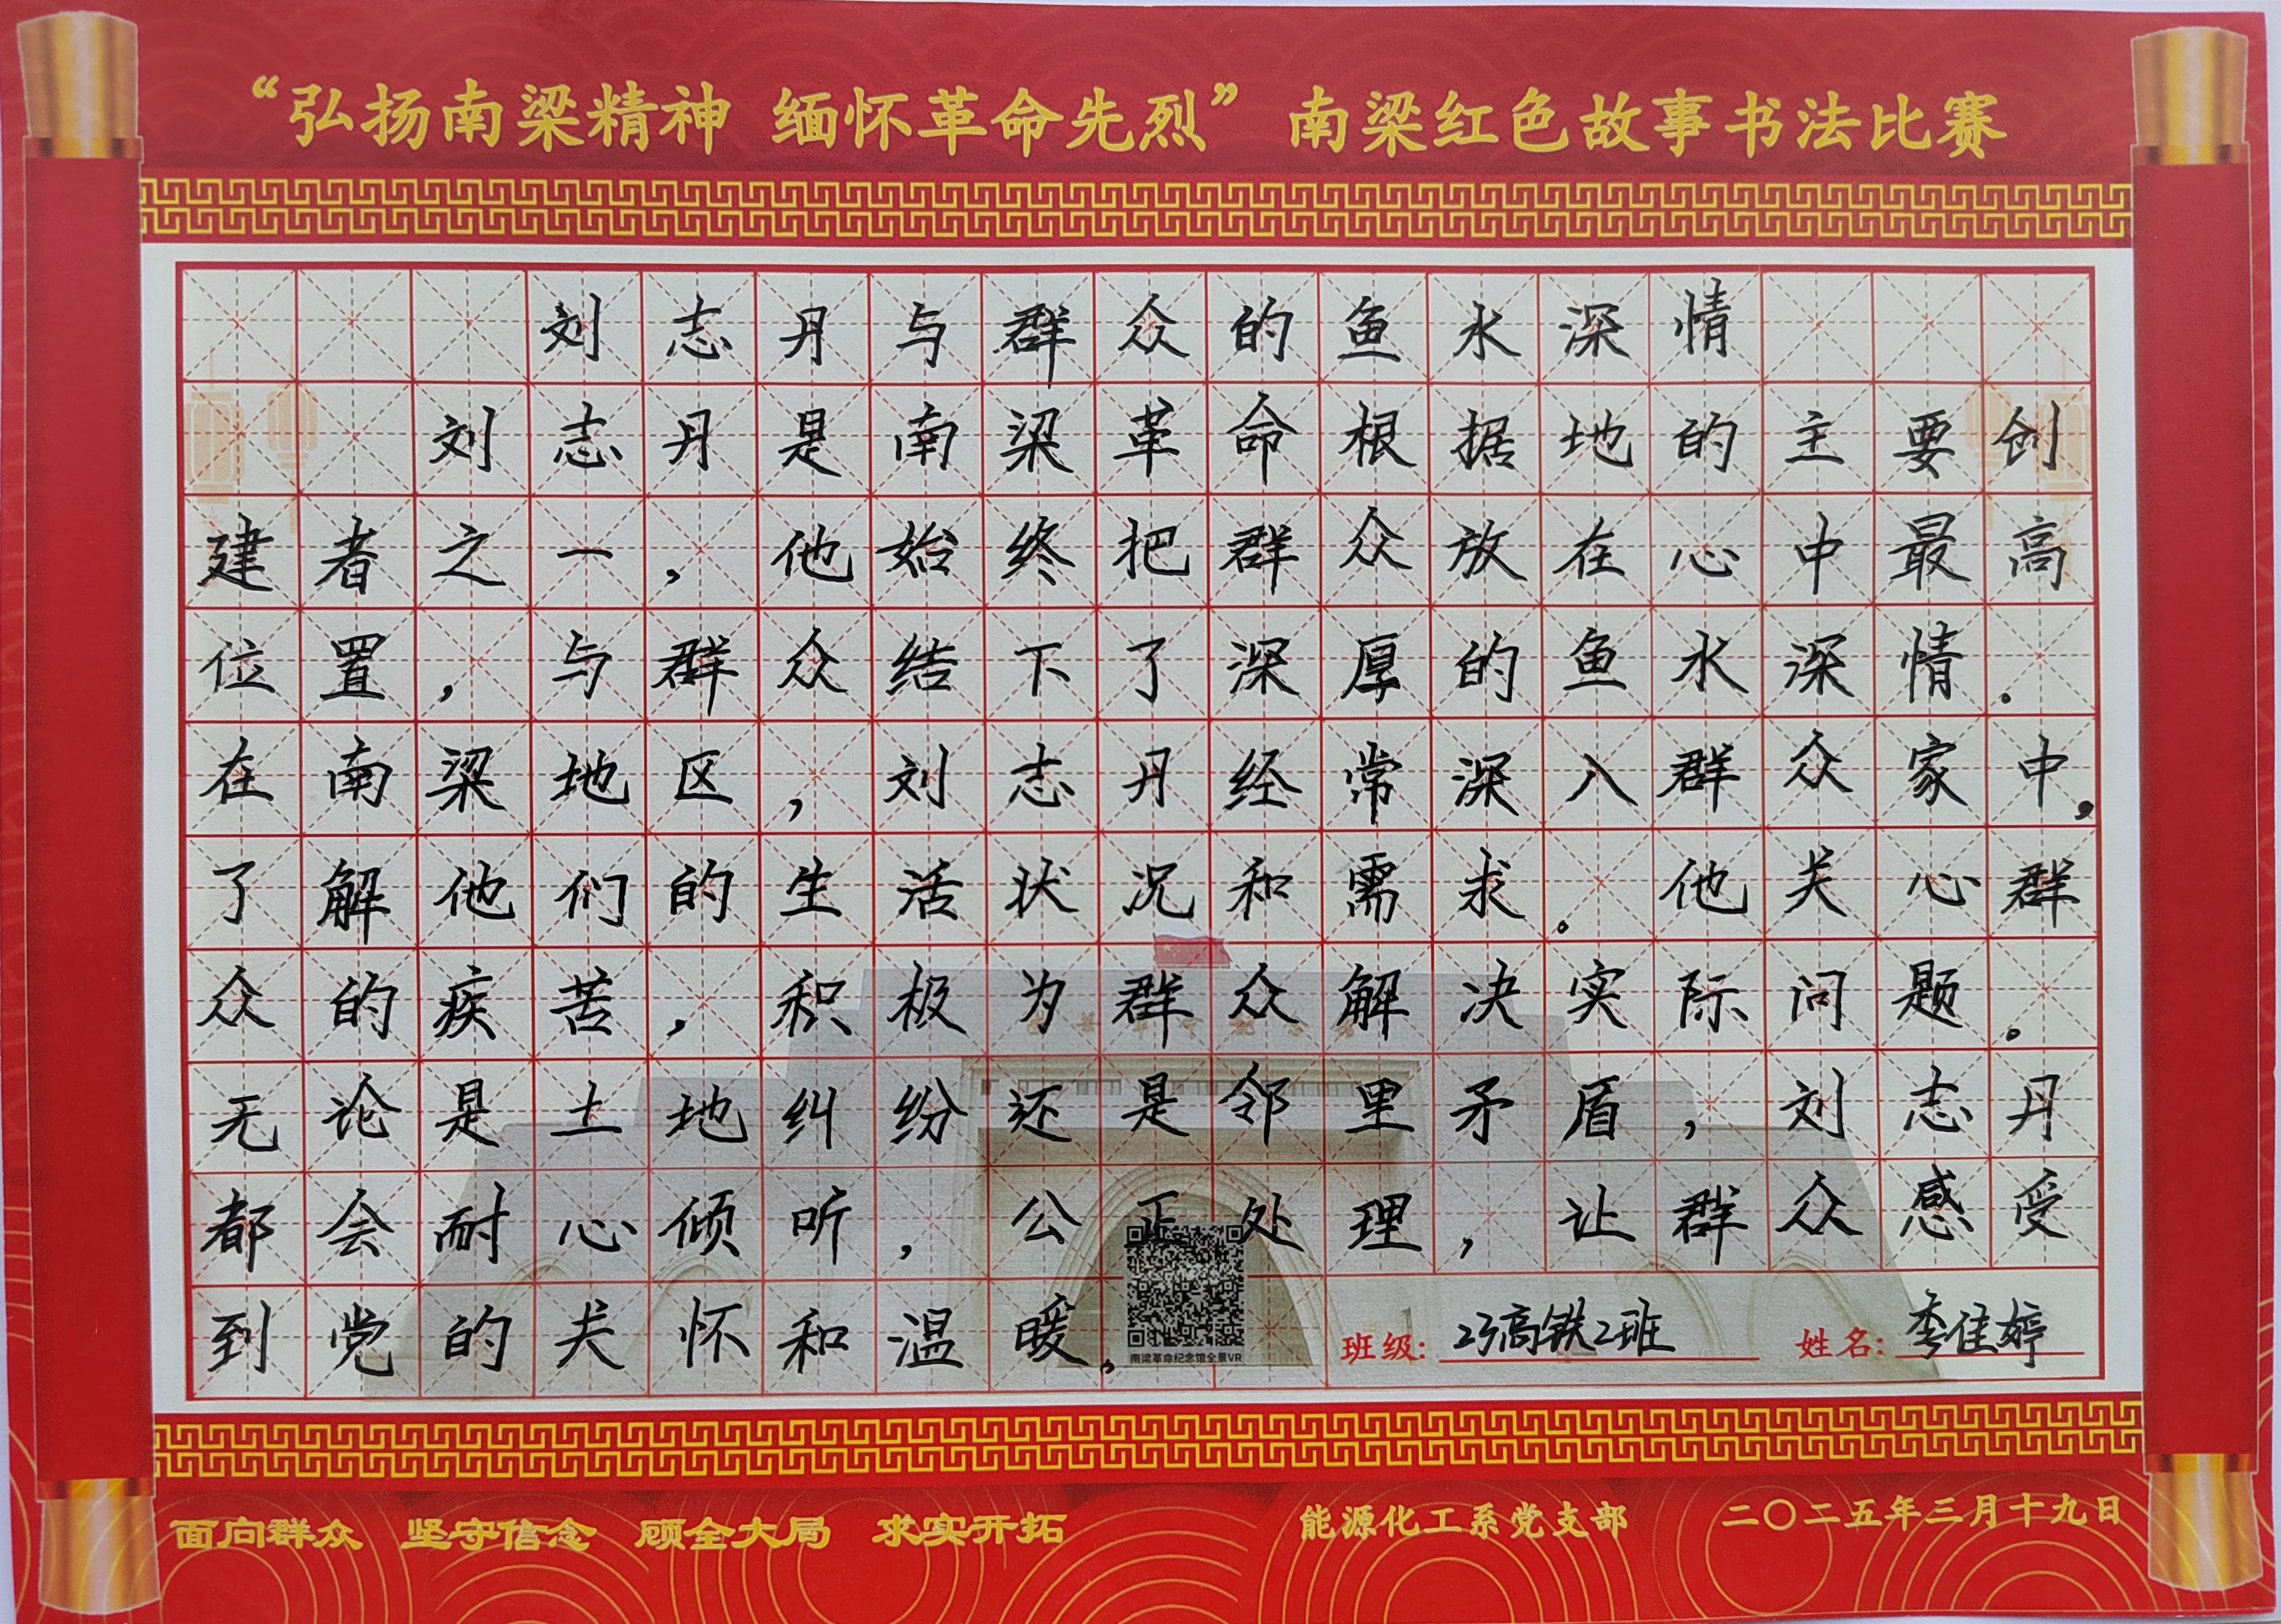 “弘扬南梁精神 缅怀革命先烈”南梁红色故事书法比赛
刘志丹与群众的鱼水深情
刘志丹是南梁革命根据地的主要创
建者之一，他始终把群众放在心中最高
位置，与群众结下了深厚的鱼水深情。
在南梁地区，刘志丹经常深入群众家中，
了解他们的生活状况和需求。他关心群
众的疾苦，积极为群众解决实际问题。
无论是土地纠纷还是邻里矛盾，刘志丹
都会耐心倾听，公正处理，让群众感受
到党的关怀和温暖。
南梁革命纪念馆全景VR
班级: 23高铁2班 姓名: 李佳婷
面向群众 坚守信念 顾全大局 求实开拓
能源化工系党支部 二〇二五年三月十九日